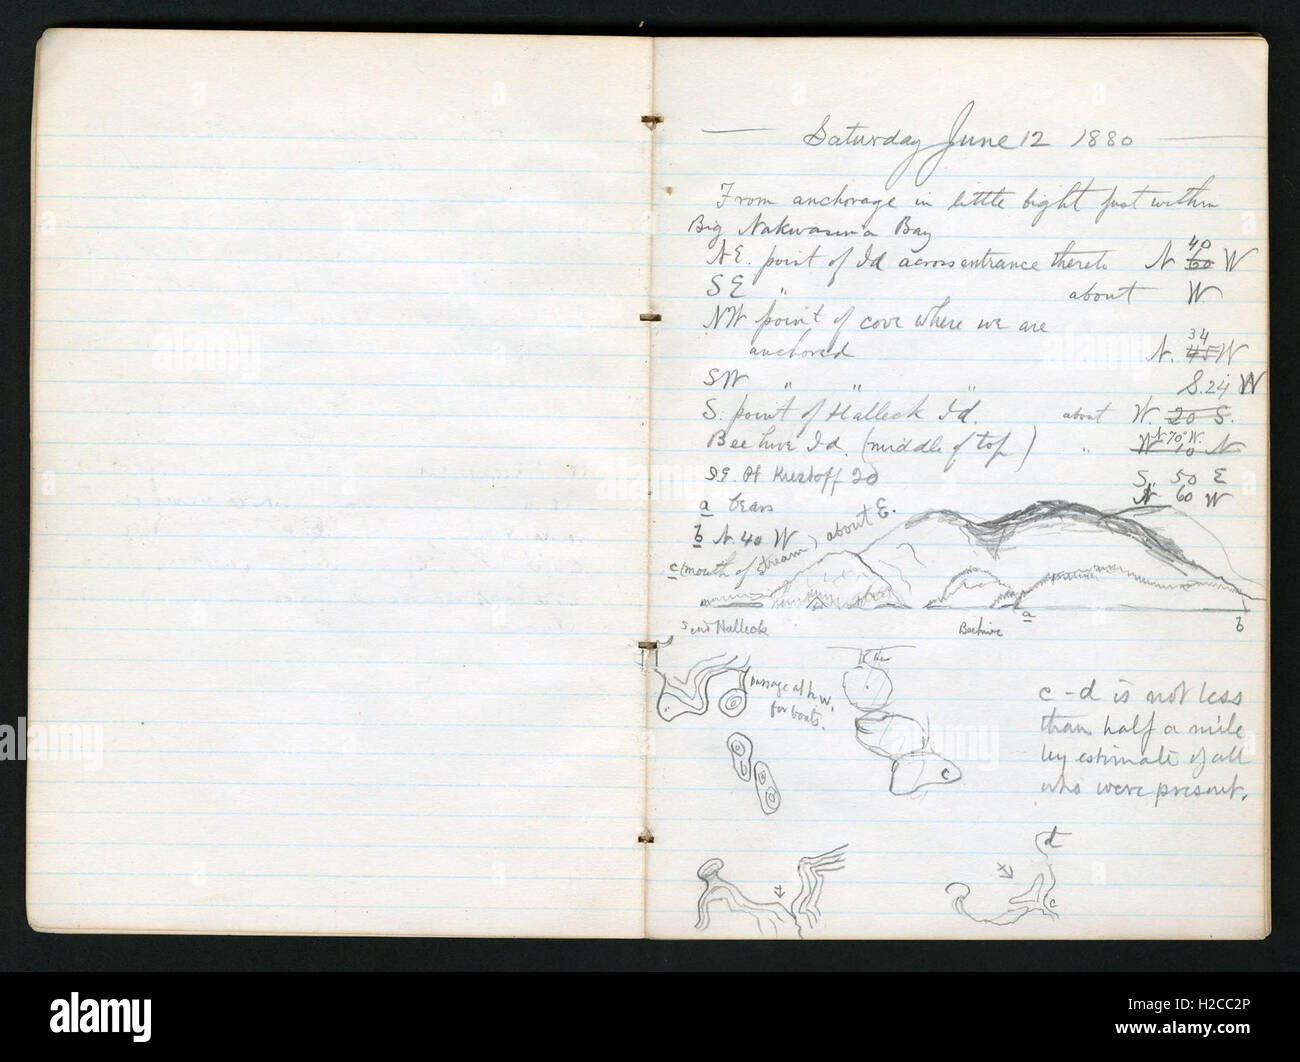 Saturday June 12 1880
From anchorage in little bight just within
Big Nakwasina Bay
N.E. point of Id across entrance thereto N 40 60 W
S E " about W.
NW point of cove where we are
anchored N. 34 45 W
SW " " " S. 24 W
S. point of Halleck Id. about W. 20 S.
Beehive Id. (middle of top) " N 70° W. W 10 N
SE. Pt Krestoff Id S. 50 E
a bears N 60 W
b N. 40 W
c (mouth of stream) about E.
S end Halleck Beehive a b
passage at h.w.
for boats.
c - d is not less
than half a mile
by estimate of all
who were present.
c
d
c
alamy
Image ID: H2CC2P
www.alamy.com